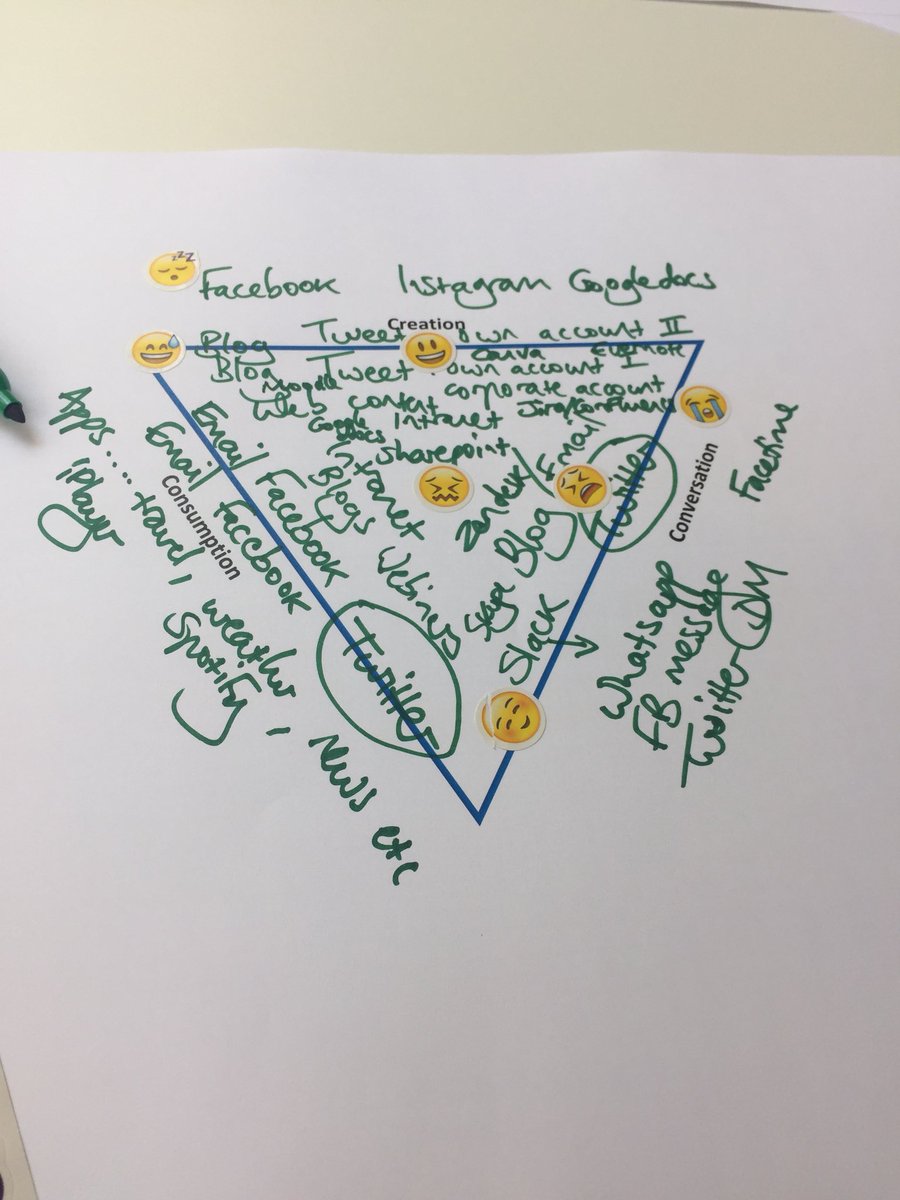 zzz
Facebook Instagram Googledocs
Creation
Blog Tweet own account II
Canva Evernote
Blog Tweet own account I
Moodle corporate account
Web content
Google Docs Intranet Jira/Confluence
sharepoint
Email Facebook
Intranet
Blogs
Webinars
Email Facebook
Twitter
Consumption
Apps.... travel, weather, News etc
iPlayer
Spotify
Zendesk
Email
Twitter
Skype
Blog
Slack
Conversation
Facetime
Whatsapp
FB message
Twitter DM